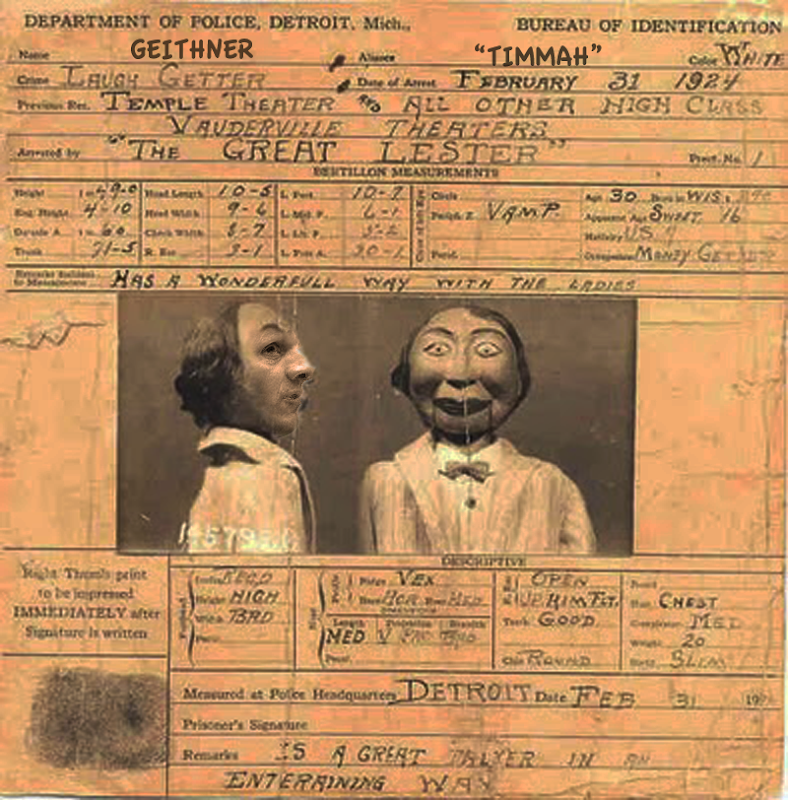 DEPARTMENT OF POLICE, DETROIT, Mich.,
BUREAU OF IDENTIFICATION
Name GEITHNER Aliases "TIMMAH" Color WHITE
Crime LAUGH GETTER Date of Arrest FEBRUARY 31 1924
Previous Rec. TEMPLE THEATER AND ALL OTHER HIGH CLASS
VAUDERVILLE THEATERS
Arrested by "THE GREAT LESTER" Prect. No. 1
BERTILLON MEASUREMENTS
Height Head Length 10-5 L. Foot 10-7 Circle Age 30 Born in WIS.
Eng. Height 4-10 Head Width 9-6 L. Mid. F. 6-1 Periph. Z. VAMP. Apparent Age SWEET 16
Outside A. Cheek Width 5-7 Nativity U.S.
Trunk R. Ear 3-1 L. Fore A. Pecul. Occupation MONEY GETTER
Remarks Incident to Measurement HAS A WONDERFULL WAY WITH THE LADIES
DESCRIPTIVE
Right Thumb print
to be impressed
IMMEDIATELY after
Signature is written
Height HIGH Ridge VEX OPEN Beard
Width Base HOR Root MED Hair CHEST
Length Projection Breadth Teeth GOOD Complexion MED
MED Weight 20
Pecul. Chin ROUND Build SLIM
Measured at Police Headquarters DETROIT Date FEB 31 19
Prisoner's Signature
Remarks IS A GREAT TALKER IN AN
ENTERAINING WAY